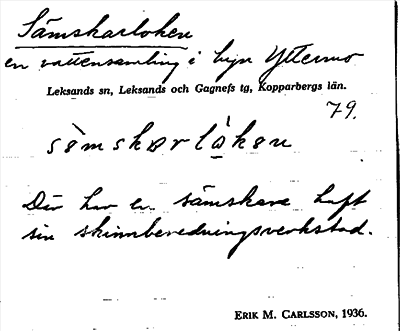 Sämskarloken
en vattensamling i byn Yttermo
Leksands sn, Leksands och Gagnefs tg, Kopparbergs län.
79.
sèmskərlò̱kən
Där har en sämskare haft
sin skinnberedningsverkstad.
ERIK M. CARLSSON, 1936.